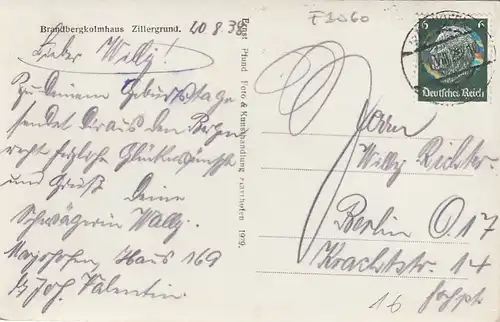 Brandbergkolmhaus Zillergrund.
20 8 39
Lieber Willy!
Zu Deinem Geburtstage
sendet Dir aus den Bergen
recht herzliche Glückwünsche
und Grüß Deine
Schwägerin Wally.
Mayrhofen Haus 169
Joh. Valentin
Ernst Pfund Foto & Kunsthandlung Mayrhofen 1929.
F1060
6 6
Deutsches Reich
Herrn
Willy Richter
Berlin O 17
Krachtstr. 14
16 hochpt.